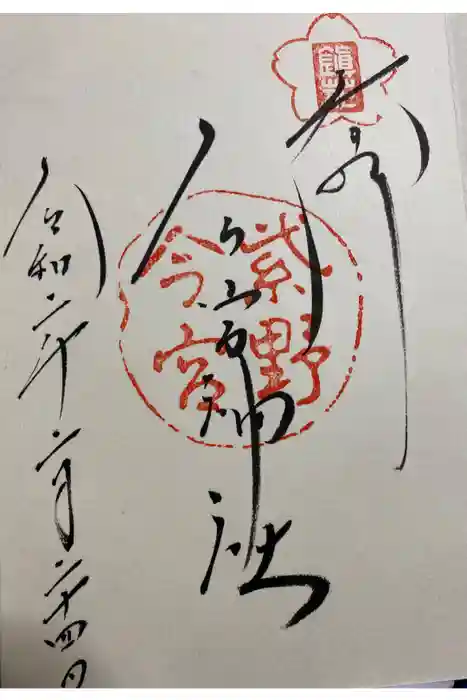 鎮花
紫野
今宮
今宮神社
令和二年二月二十四日